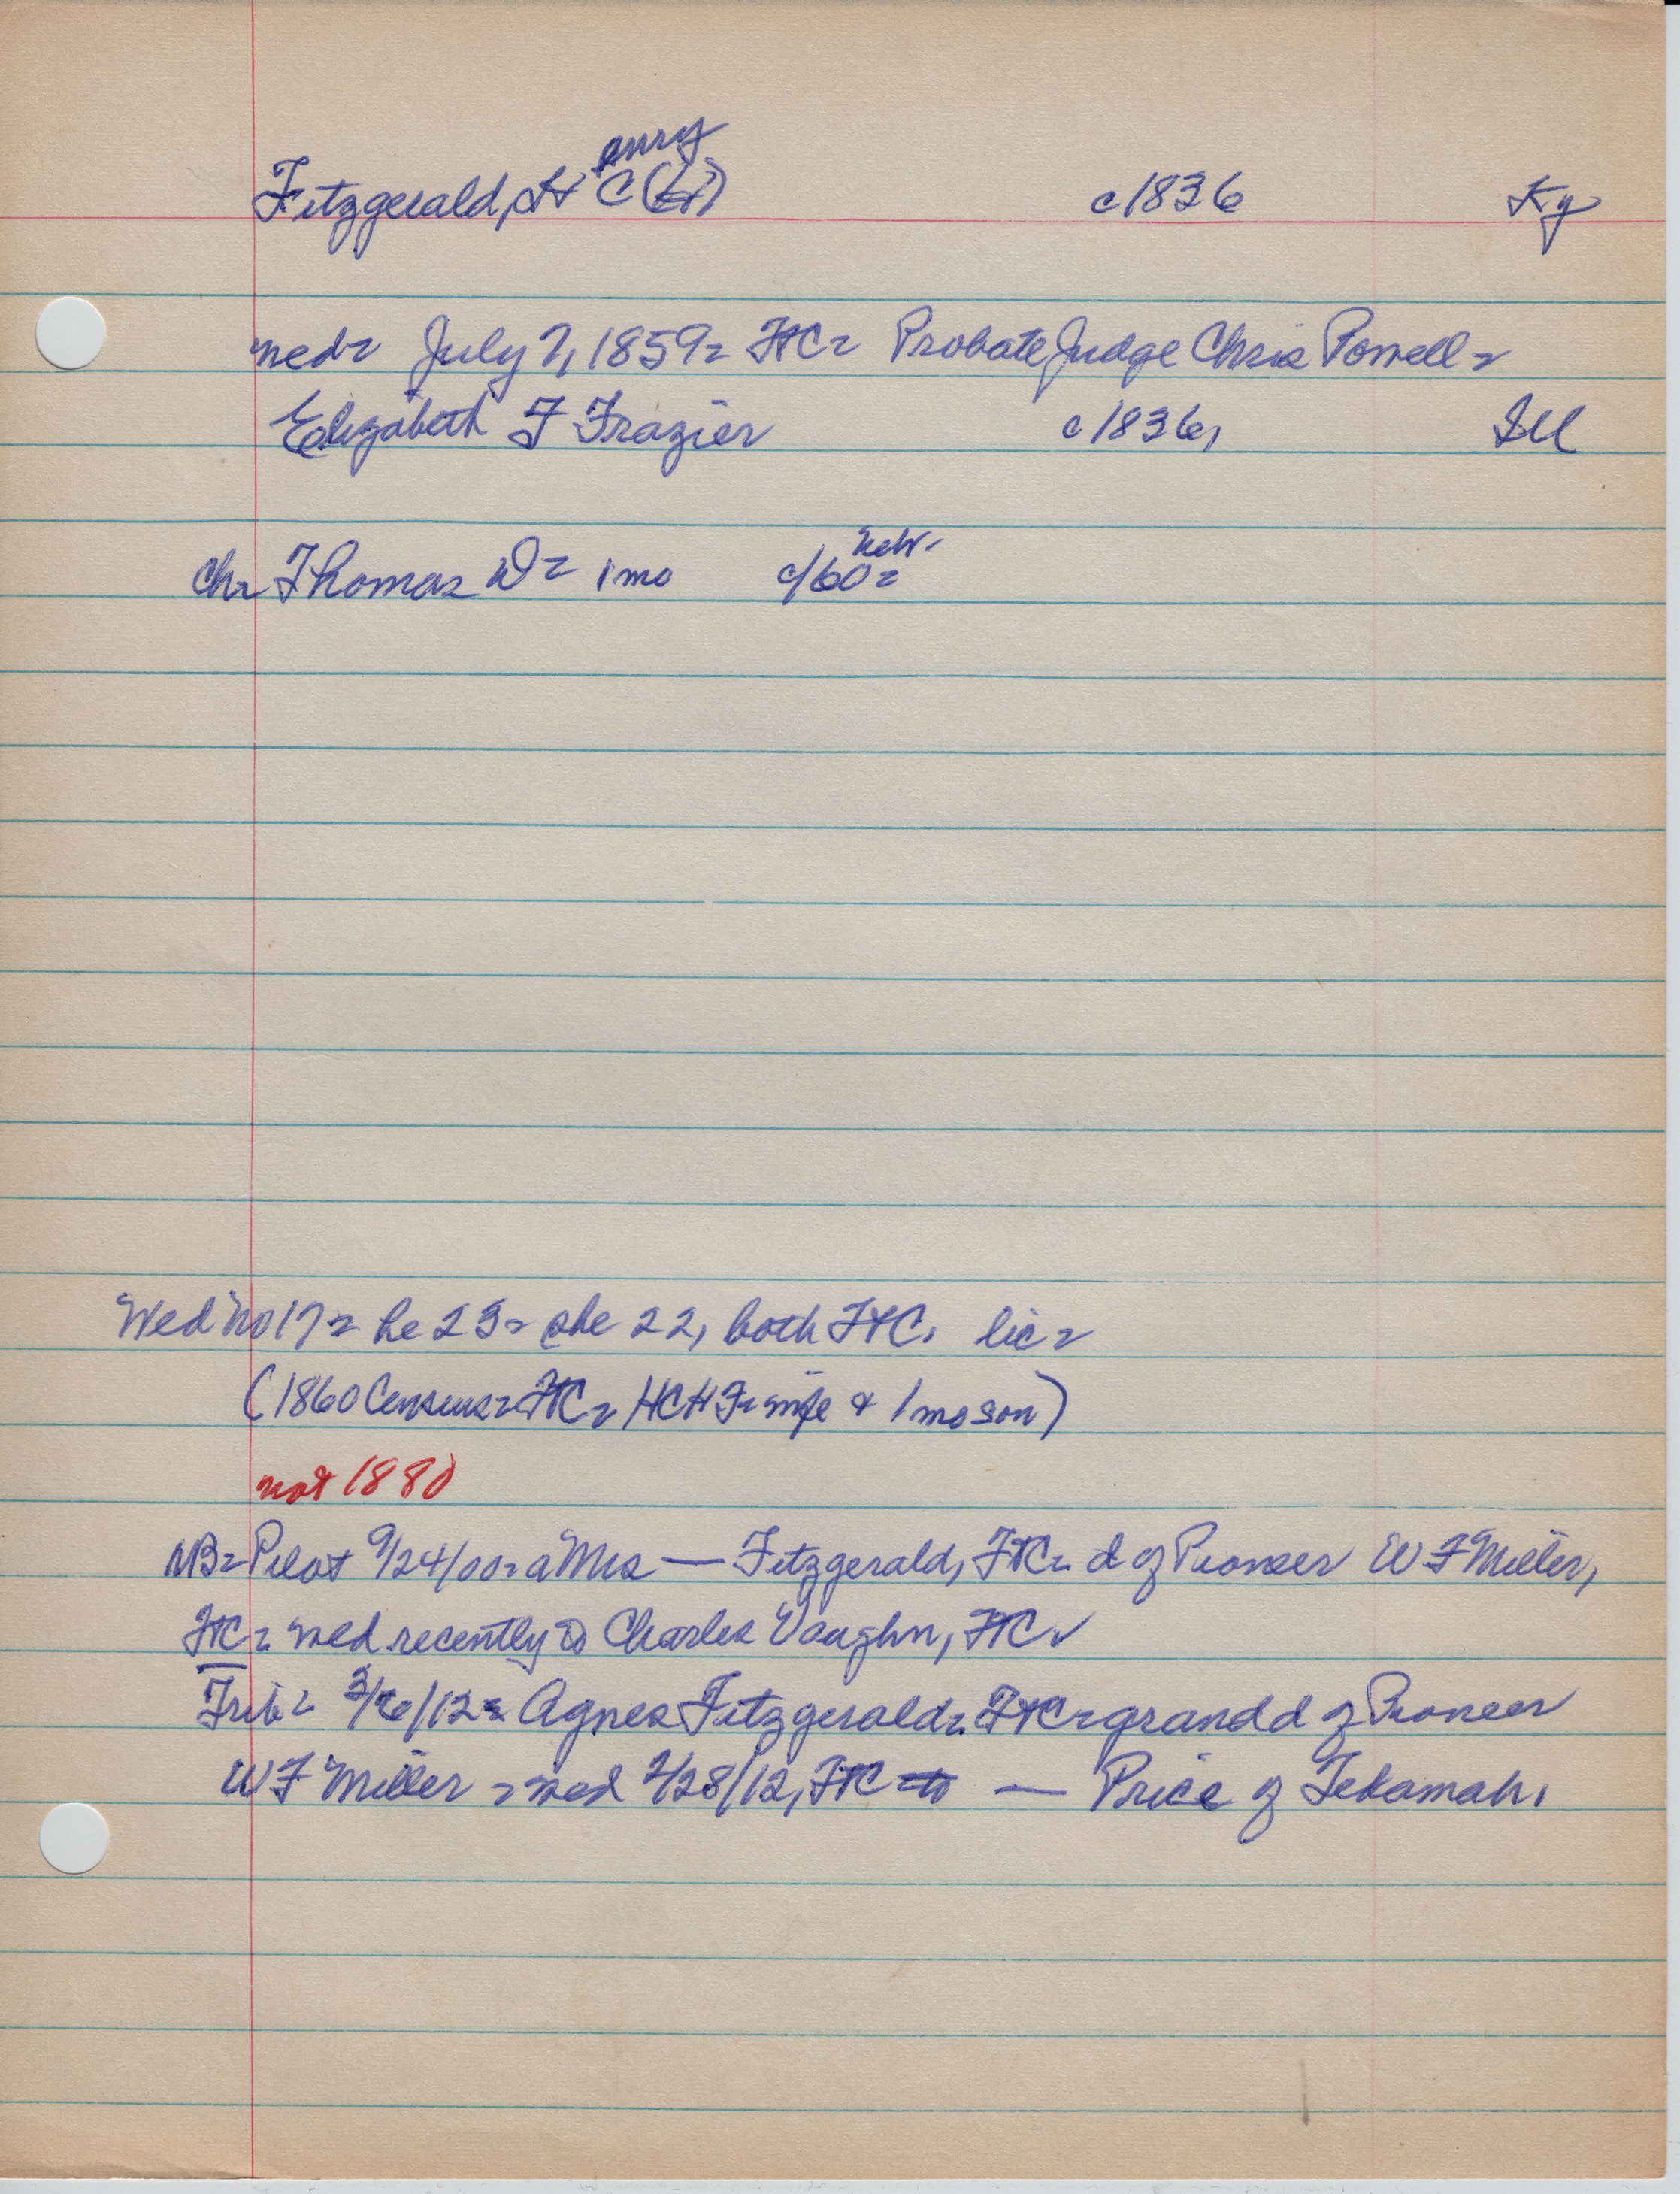 enry
Fitzgerald, H C (H) c1836 Ky
med- July 7, 1859- FTC- Probate Judge Chris Powell-
Elizabeth F Frazier c1836, Ill
Nebr.
Ch- Thomas D- 1 mo c/60-
Wed No 17- he 23- she 22, both FTC. lic-
(1860 Census- FTC- HCH F- wife & 1 mo son)
not 1880
NB- Pilot 9/24/00- a Mrs — Fitzgerald, FTC- d of Pioneer W F Miller,
FTC- med recently to Charles Vaughn, FTC
Trib- 3/6/12- Agnes Fitzgerald- FTC- grandd of Pioneer
W F Miller - med 2/28/12, FTC to — Price of Tekamah.